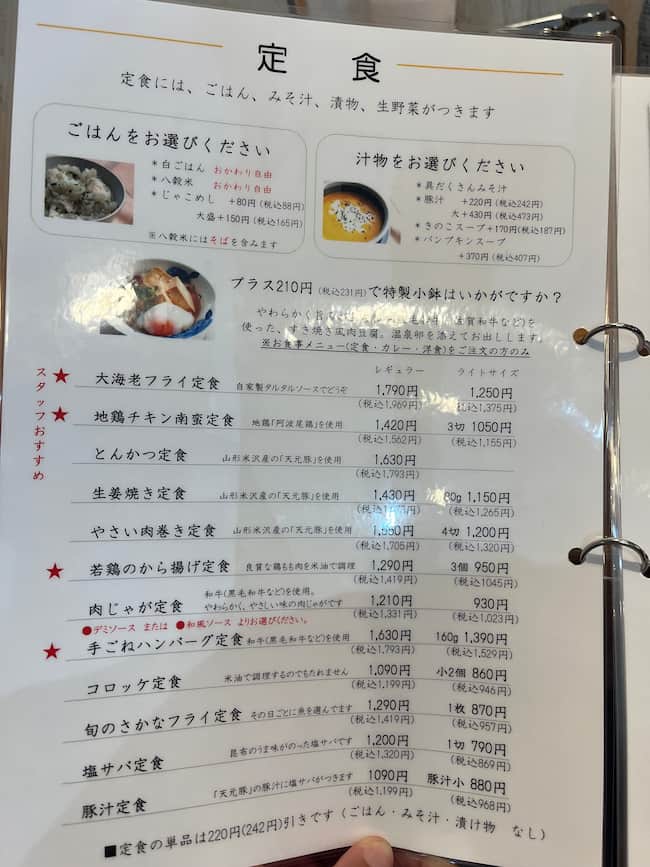 定食
定食には、ごはん、みそ汁、漬物、生野菜がつきます
ごはんをお選びください
＊白ごはん おかわり自由
＊八穀米 おかわり自由
＊じゃこめし ＋80円(税込88円)
大盛＋150円(税込165円)
※八穀米にはそばを含みます
汁物をお選びください
＊具だくさんみそ汁
＊豚汁 ＋220円(税込242円)
大＋430円(税込473円)
＊きのこスープ＋170円(税込187円)
＊パンプキンスープ
＋370円(税込407円)
プラス210円(税込231円)で特製小鉢はいかがですか？
やわらかく 佐賀和牛など)を
使った、すき焼き風肉豆腐。温泉卵を添えてお出しします。
※お食事メニュー(定食・カレー・洋食)をご注文の方のみ
レギュラー ライトサイズ
スタッフおすすめ
★ 大海老フライ定食 自家製タルタルソースでどうぞ 1,790円 1,250円
(税込1,969円) 税込1,375円)
★ 地鶏チキン南蛮定食 地鶏「阿波尾鶏」を使用 1,420円 3切 1050円
(税込1,562円) (税込1,155円)
とんかつ定食 山形米沢産の「天元豚」を使用 1,630円
(税込1,793円)
生姜焼き定食 山形米沢産の「天元豚」を使用 1,430円 80g 1,150円
(税込1,265円)
やさい肉巻き定食 山形米沢産の「天元豚」を使用 1,550円 4切 1,200円
(税込1,705円) (税込1,320円)
★ 若鶏のから揚げ定食 良質な鶏もも肉を米油で調理 1,290円 3個 950円
(税込1,419円) (税込1045円)
肉じゃが定食 和牛(黒毛和牛など)を使用。 1,210円 930円
やわらかく、やさしい味の肉じゃがです (税込1,331円) (税込1,023円)
●デミソース または ●和風ソース よりお選びください。
★ 手ごねハンバーグ定食 和牛(黒毛和牛など)を使用 1,630円 160g 1,390円
(税込1,793円) (税込1,529円)
コロッケ定食 米油で調理するのでもたれません 1,090円 小2個 860円
(税込1,199円) (税込946円)
旬のさかなフライ定食 その日ごとに魚を選んでます 1,290円 1枚 870円
(税込1,419円) (税込957円)
塩サバ定食 昆布のうま味がのった塩サバです 1,200円 1切 790円
(税込1,320円) (税込869円)
豚汁定食 「天元豚」の豚汁に塩サバがつきます 1090円 豚汁小 880円
(税込1,199円) (税込968円)
■定食の単品は220円(242円)引きです（ごはん・みそ汁・漬け物 なし）